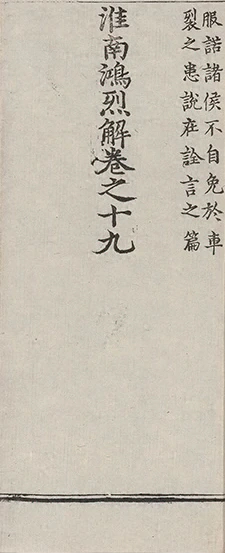 服諾諸侯不自免於車
裂之患説在詮言之篇
淮南鴻烈解卷之十九